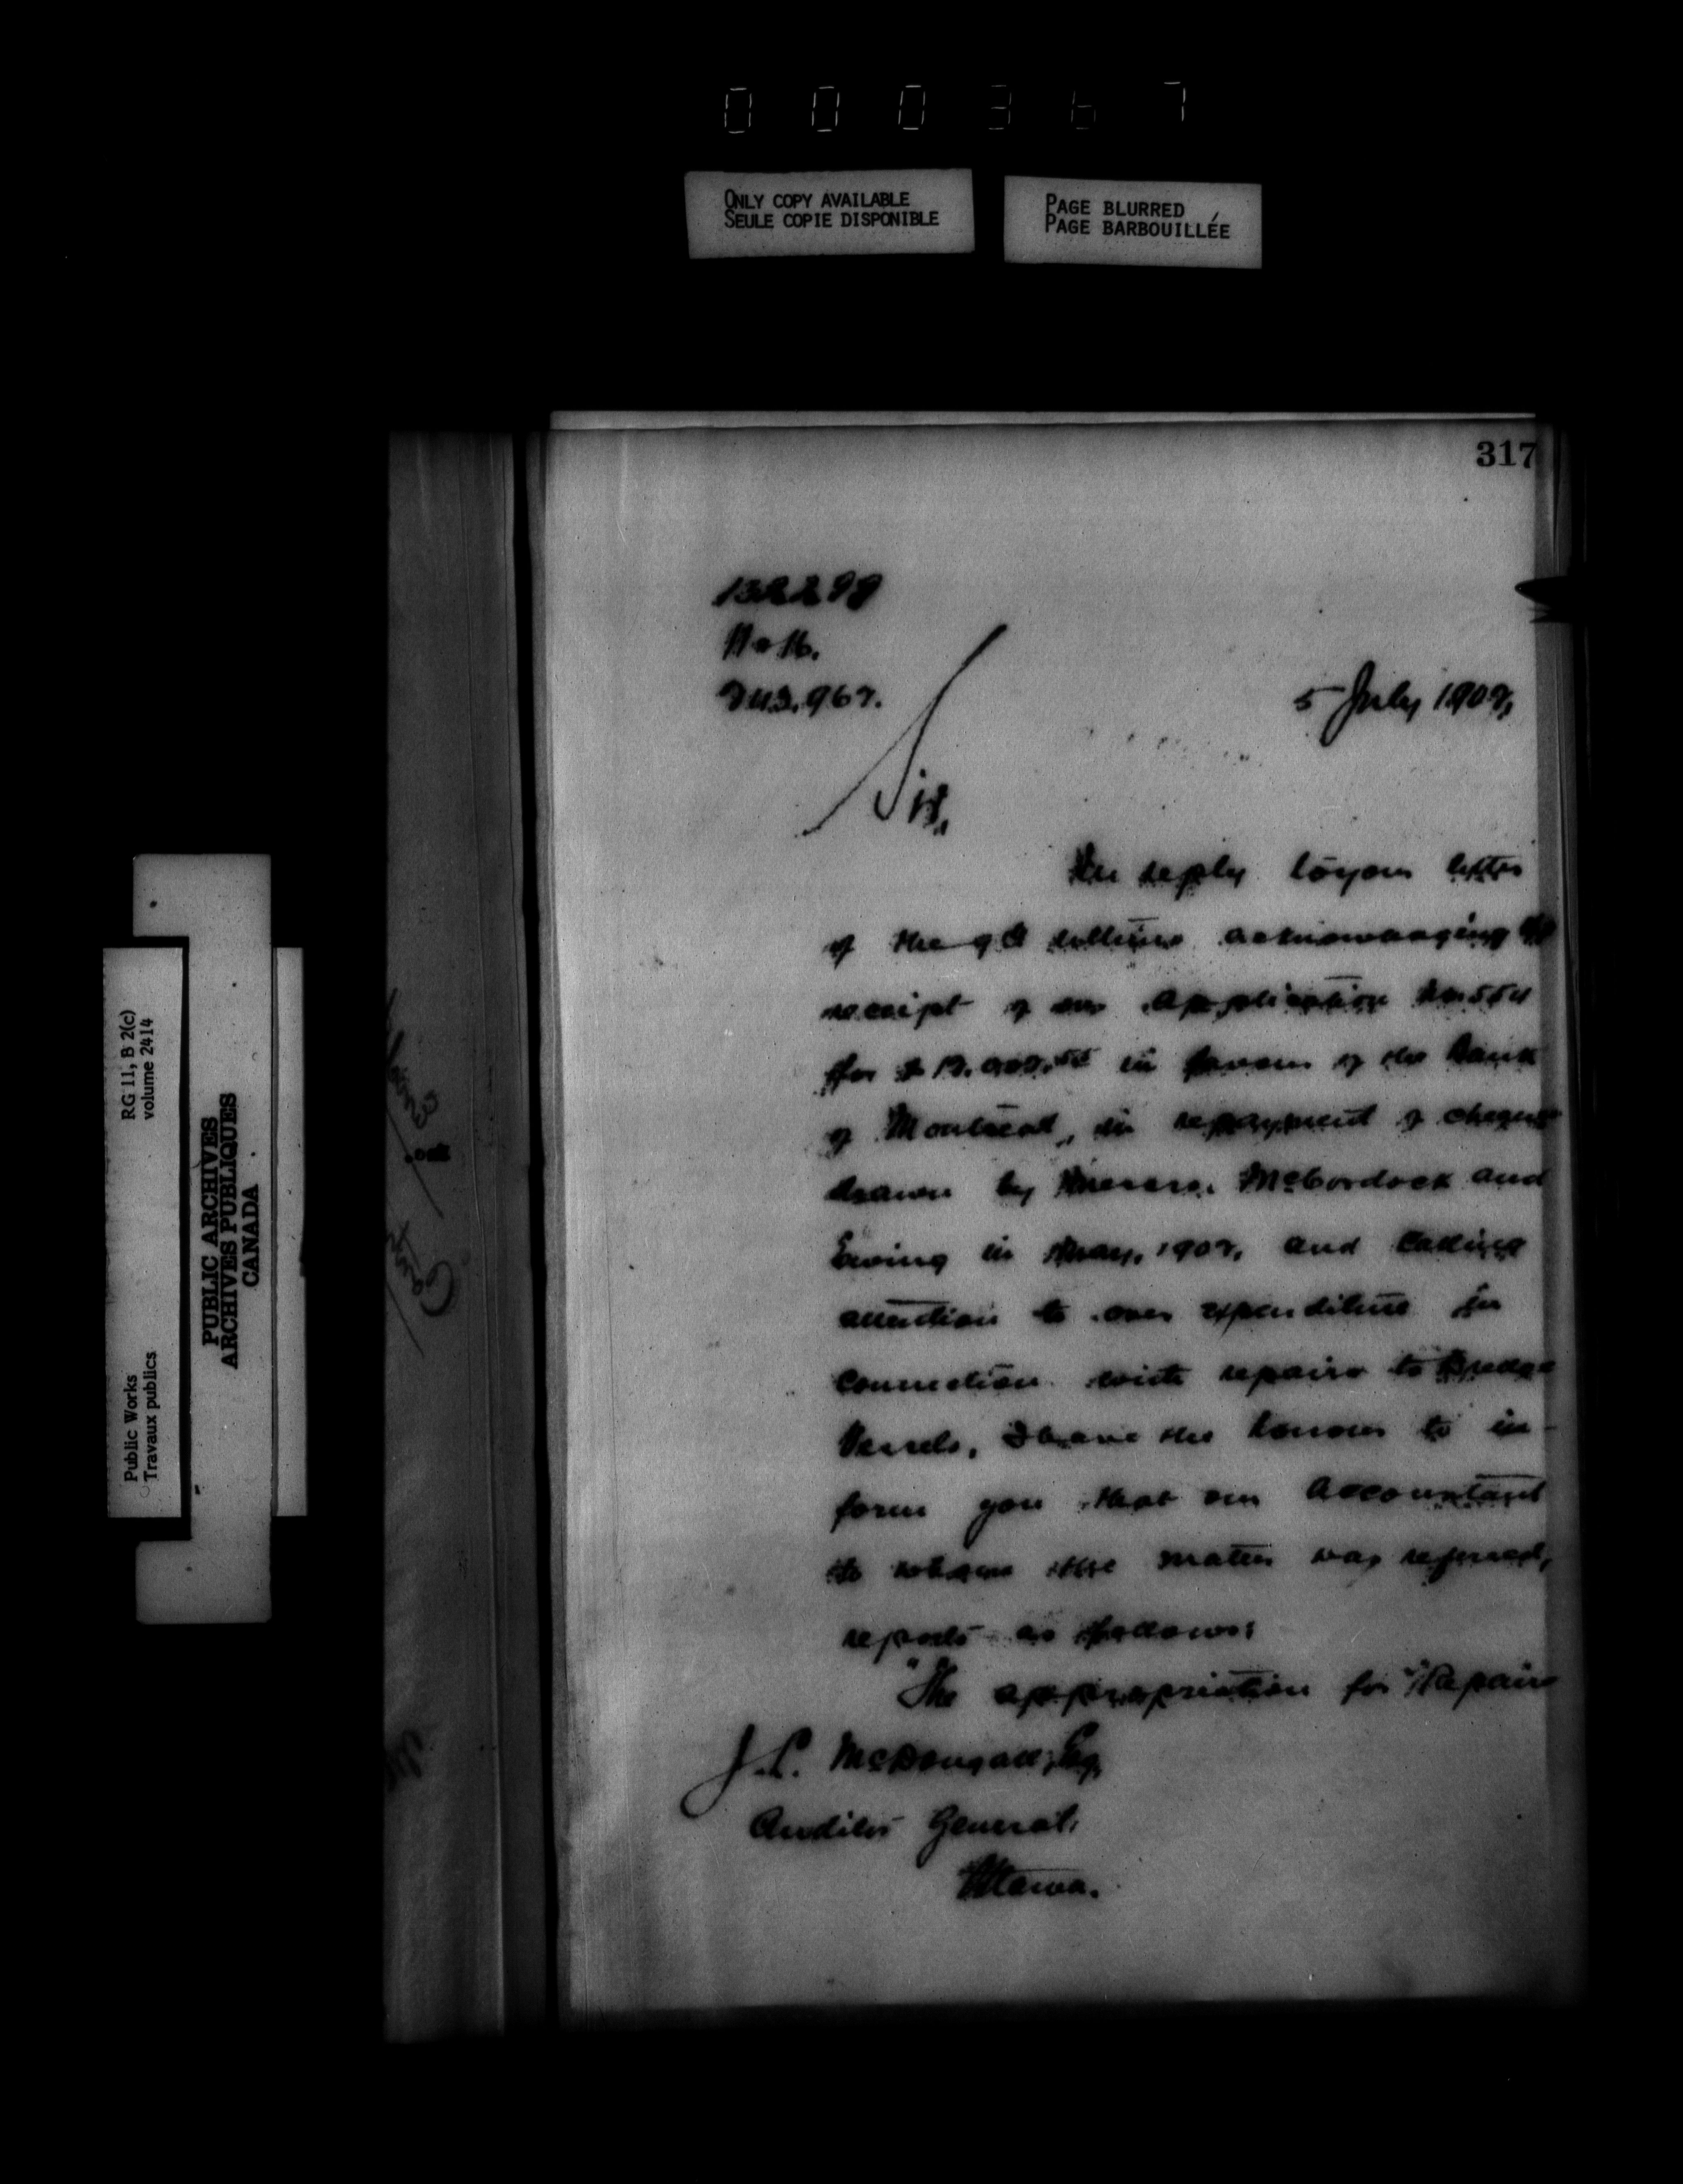 000367
ONLY COPY AVAILABLE
SEULE COPIE DISPONIBLE
PAGE BLURRED
PAGE BARBOUILLÉE
RG 11, B 2(c)
volume 2414
Public Works
Travaux publics
PUBLIC ARCHIVES
ARCHIVES PUBLIQUES
CANADA
317
5 July 1902,
Sir,
In reply to your letter
of the acknowledging the
receipt of our application
for $ in favour of the Bank
of Montreal, in repayment of cheques
drawn by Messrs. McCordock and
Ewing in May, 1902, and calling
attention to over expenditure in
connection with repairs to Dredge
Vessels, I have the honour to in-
form you that our Accountant
to whom the matter was referred,
reports as follows:
"The appropriation for "Repairs
J. L. McDougall, Esq,
Auditor General,
Ottawa.